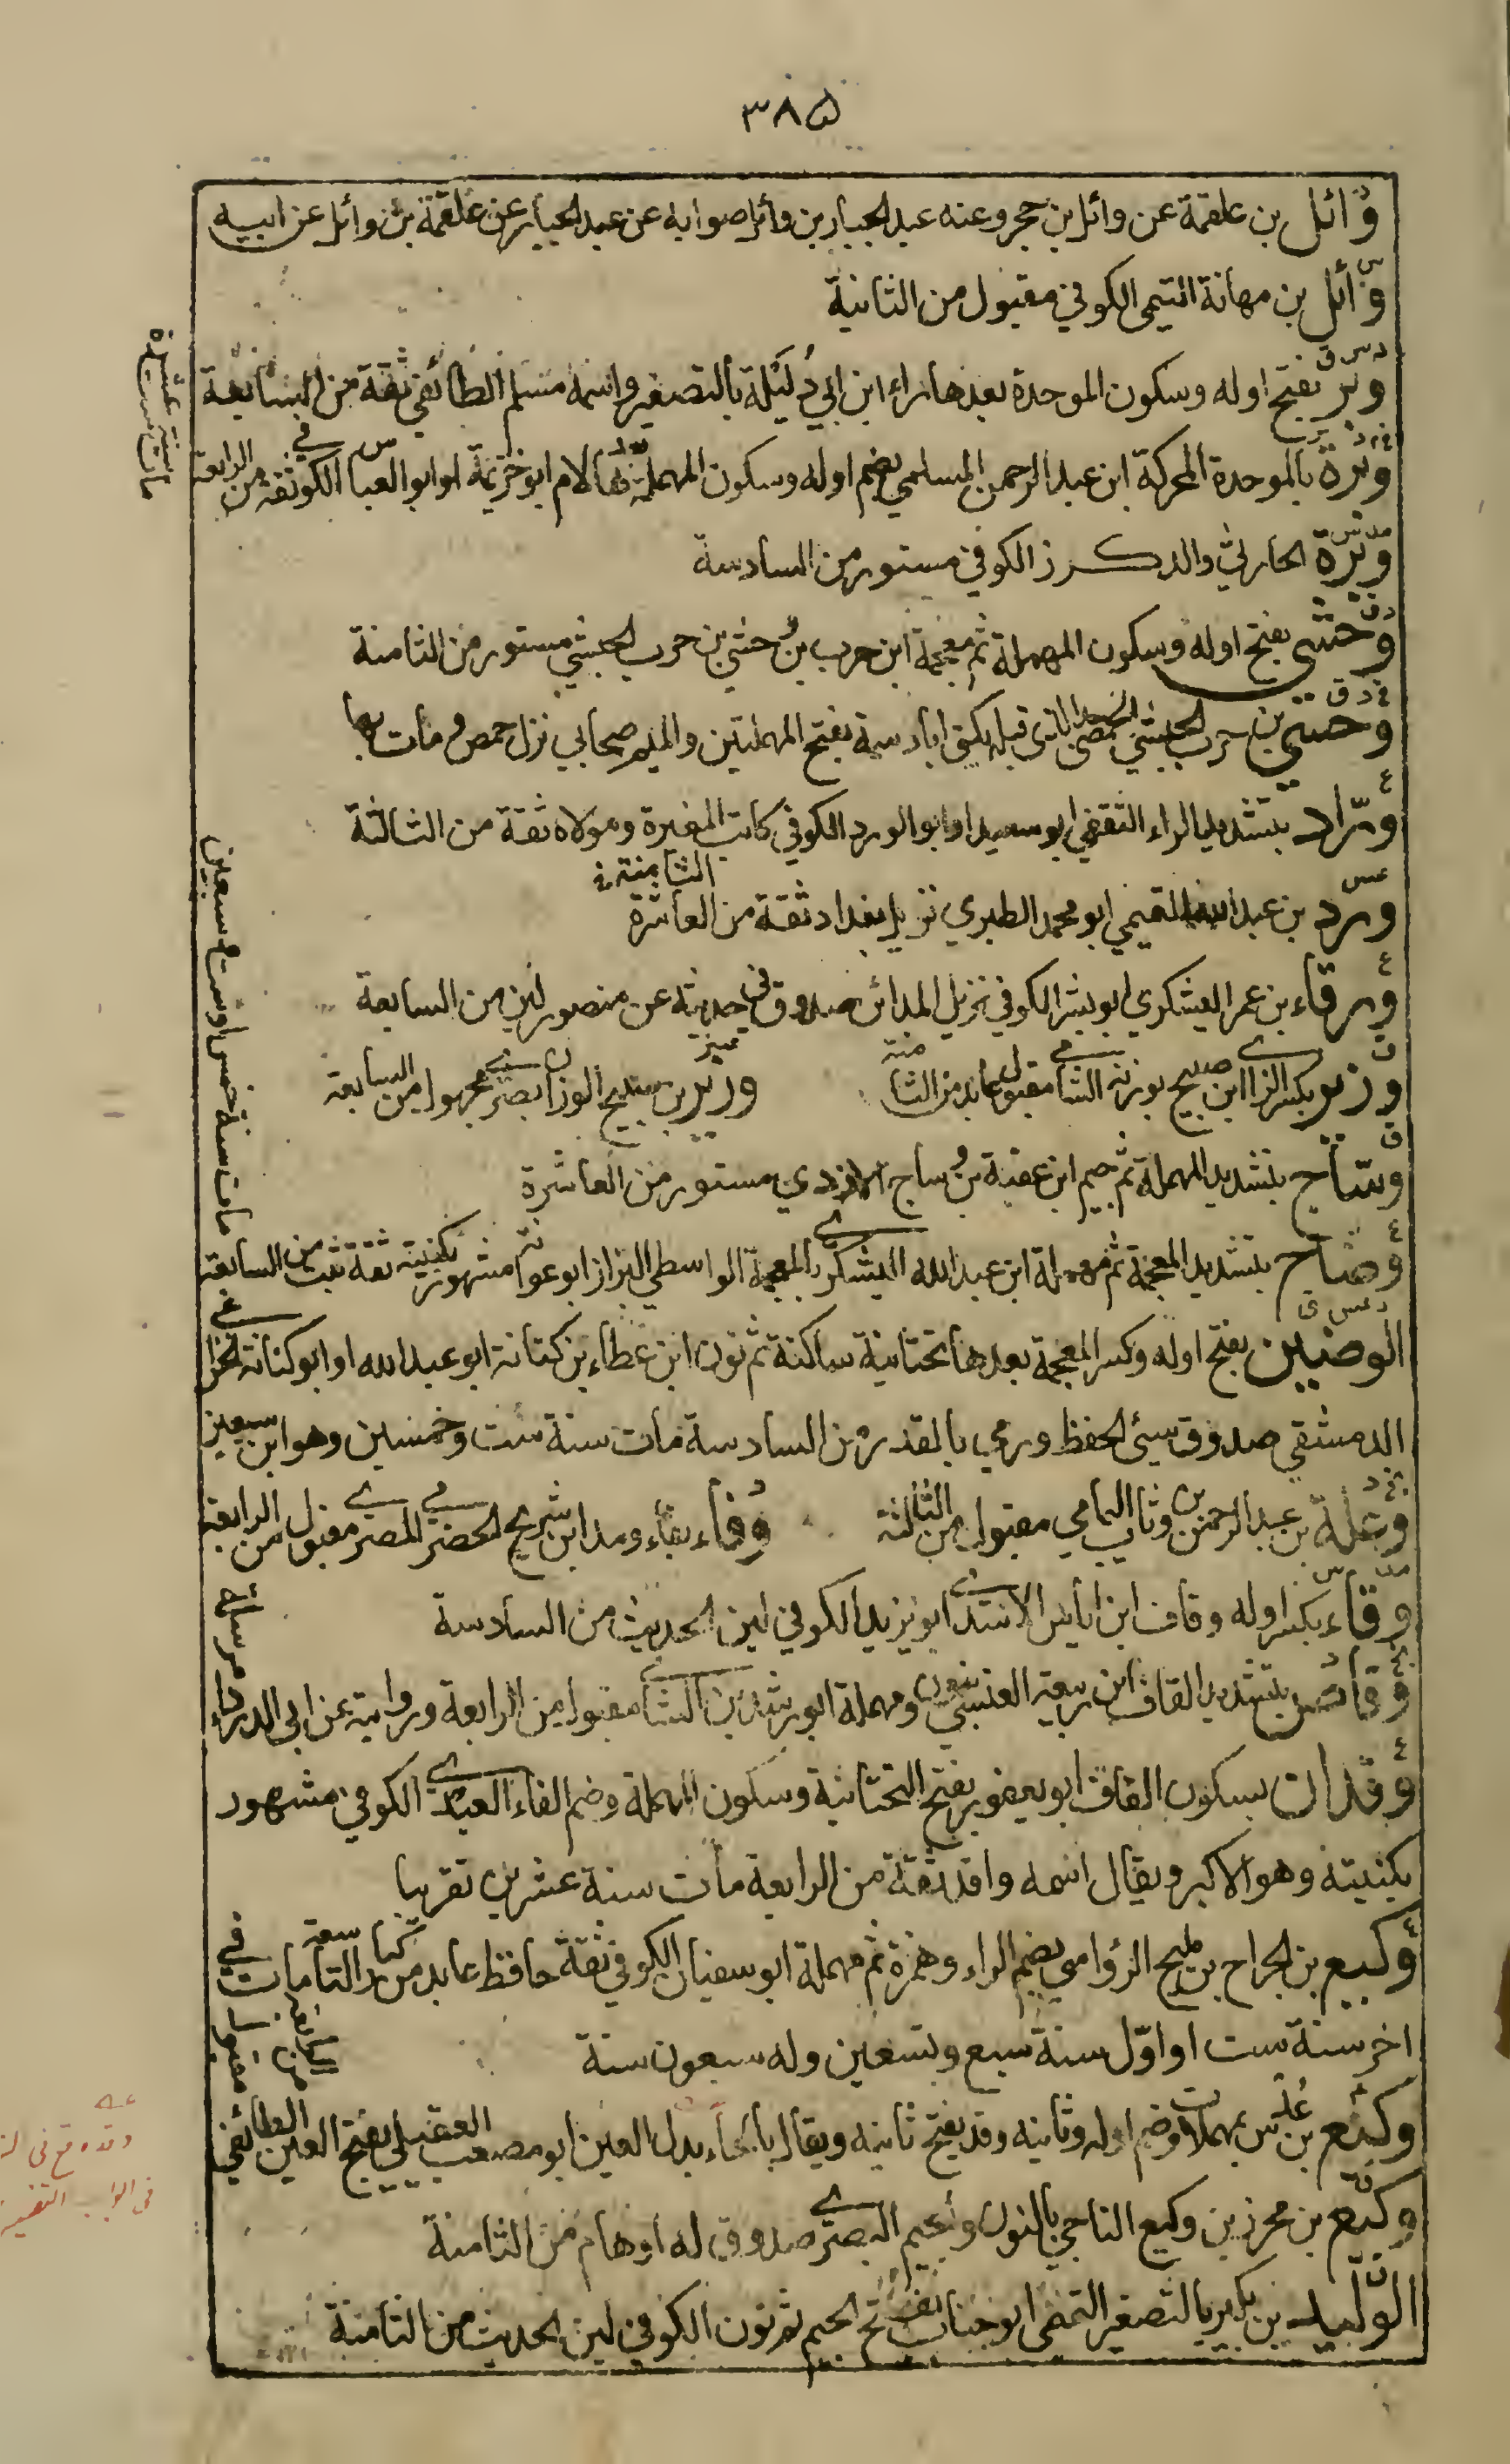 ٣٨۵
وائل بن علقمة عن وائل بن حجر وعنه عبد الجبار بن وائل صوابه عن عبد الجبار عن علقمة بن وائل عن ابيه
س
وائل بن مهانة التيمي الكوفي مقبول من الثانية
د س ق
وبر بفتح اوله وسكون الموحدة بعدها راء ابن ابي دُليلة بالتصغير واسمه مسلم الطائفي ثقة من السابعة
وبرة بالموحدة المحركة ابن عبد الرحمن المسلي بضم اوله وسكون المهملة بعدها لام ابو خزيمة او ابو العباس الكوفي ثقة من الرابعة
مات سنة ست عشرة
وبرة الحارثي والد كرز الكوفي مستور من السادسة
د ق
وحشي بفتح اوله وسكون المهملة ثم معجمة ابن حرب بن وحشي بن حرب الحبشي مستور من الثامنة
خ د ق
وحشي بن حرب الحبشي الحمصي جد الذي قبله يكنى ابا دسمة بفتح المهملتين والميم صحابي نزل حمص ومات بها
٤
ورّاد بتشديد الراء الثقفي ابو سعيد او ابو الورد الكوفي كاتب المغيرة ومولاه ثقة من الثالثة
الثامنة
عس
ورد بن عبد الله التميمي ابو محمد الطبري نزيل بغداد ثقة من العاشرة
٤
ورقاء بن عمر اليشكري ابو بشر الكوفي نزيل المدائن صدوق في حديثه عن منصور لين من السابعة
ق
وزير بن صبيح ابو روح الشامي مقبول عابد من الثامنة
تمييز
وزير بن صبيح الوزان بصري مجهول من السابعة
ق
وساج بتشديد المهملة ثم جيم ابن عقبة بن وساج الازدي مستور من العاشرة
٤
وضاح بتشديد المعجمة ثم مهملة ابن عبد الله اليشكري بالمعجمة الواسطي البزاز ابو عوانة مشهور بكنيته ثقة ثبت من السابعة
مات سنة خمس او ست وسبعين
د عس ق
الوضين بفتح اوله وكسر المعجمة بعدها تحتانية ساكنة ثم نون ابن عطاء بن كنانة ابو عبد الله او ابو كنانة الخزاعي
الدمشقي صدوق سيئ الحفظ ورمي بالقدر من السادسة مات سنة ست وخمسين وهو ابن سبعين
بخ د
وعلة بن عبد الرحمن بن وثاب اليمامي مقبول من الثالثة
د
وفاء بفاء ومد ابن شريح الحضرمي المصري مقبول من الرابعة
وقاء بكسر اوله وقاف ابن اياس الاسدي ابو يزيد الكوفي لين الحديث من السادسة
وقاص بتشديد القاف ابن ربيعة العنسي بنون ومهملة ابو رشدين الشامي مقبول من الرابعة وروايته عن ابي الدرداء
مرسلة
٤
وقدان بسكون القاف ابو يعفور بفتح التحتانية وسكون المهملة وضم الفاء العبدي الكوفي مشهور
بكنيته وهو الاكبر ويقال اسمه واقد ثقة من الرابعة مات سنة عشرين تقريبا
٤
وكيع بن الجراح بن مليح الرؤاسي بضم الراء وهمزة ثم مهملة ابو سفيان الكوفي ثقة حافظ عابد من كبار التاسعة مات في
اخر سنة ست او اوّل سنة سبع وتسعين وله سبعون سنة
مقبول من الرابعة
٤
وكيع بن عُدس بمهملات وضم اوله وثانيه وقد يفتح ثانيه ويقال بالحاء بدل العين ابو مصعب العقيلي بفتح العين الطائفي
وكيع بن محرز بن وكيع الناجي بالنون والجيم البصري صدوق له اوهام من الثامنة
الوليد بن بكير بالتصغير التميمي ابو جناب بفتح الجيم ثم نون الكوفي لين الحديث من الثامنة